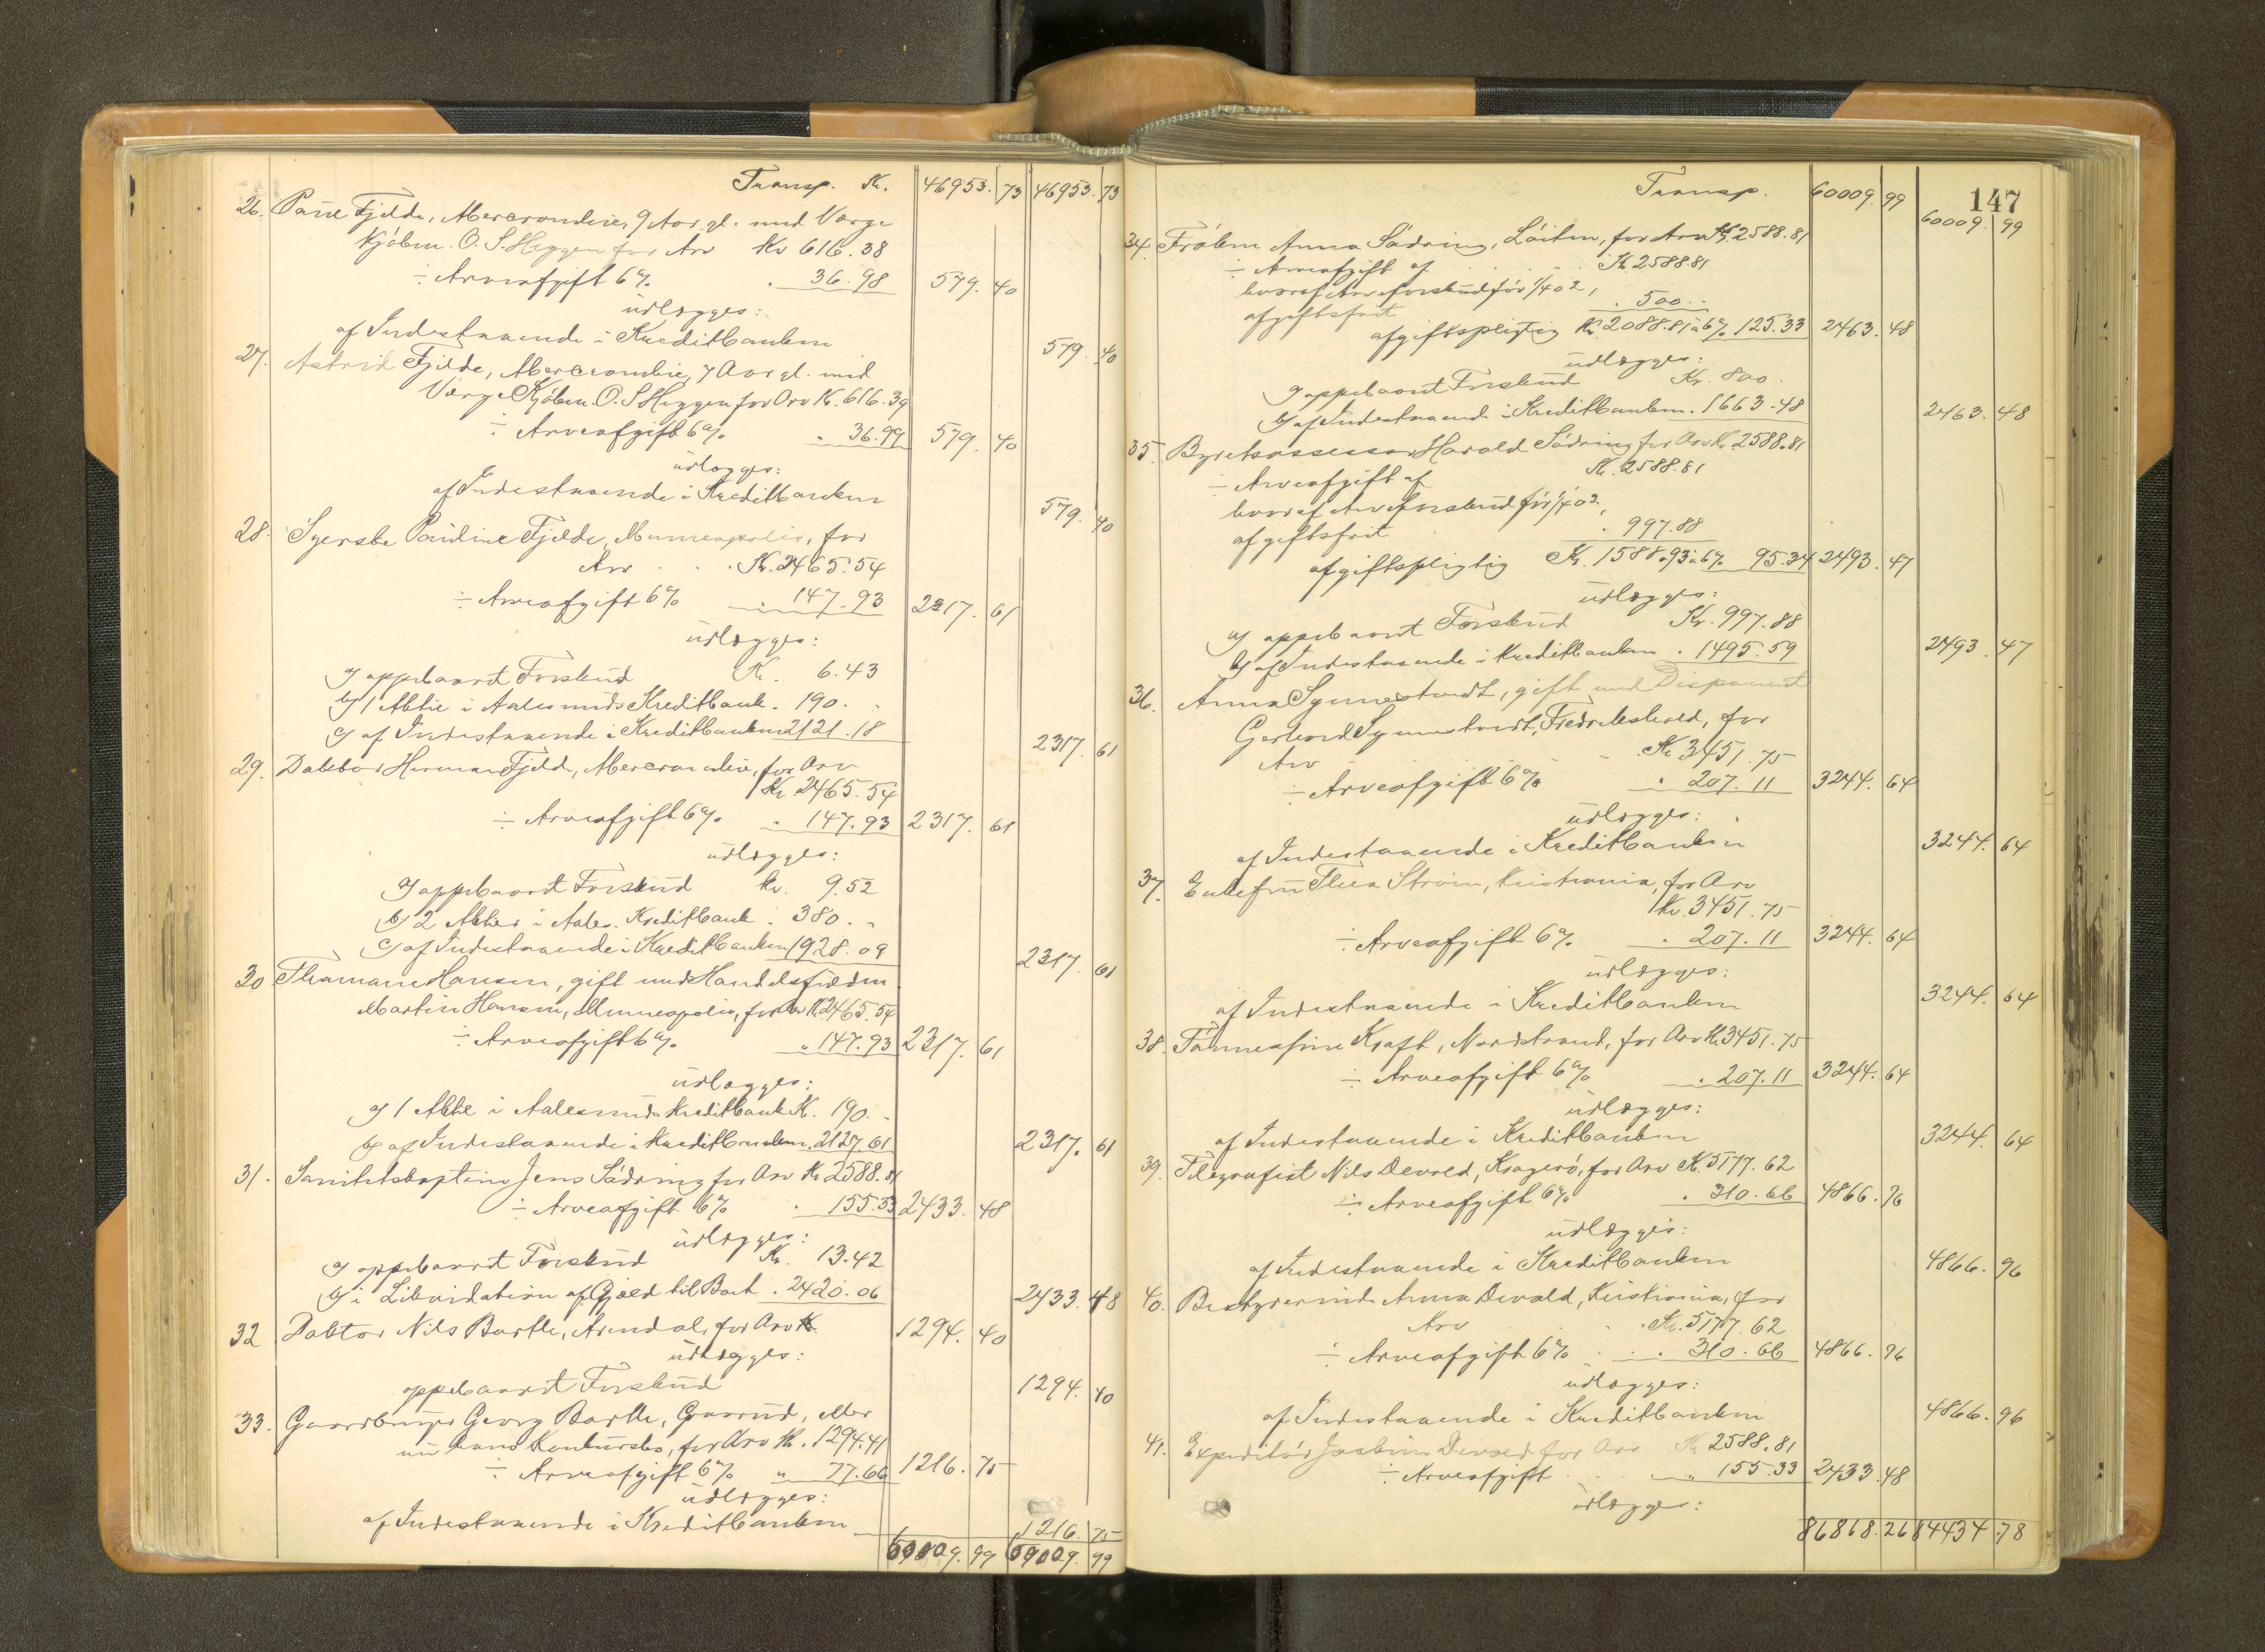 Transp. Kr. 46953. 73 46953. 73
26. Paul Fjelde, Mercrombie, 9 Aar gl. med Værge
Kjøbm. O. S. Heggen for Arv Kr 616.38
÷ Arveafgift 6% . 36.98 579. 40
udlægges:
af Indestaaende i Kreditbanken 579. 40
27. Astrid Fjelde, Abercrombie, 7 Aar gl. med
Værge Kjøbm. O. S. Heggen for Arv K. 616.39
÷ Arveafgift 6% . 36.99 579. 40
udlægges:
af Indestaaende i Kreditbanken 579. 40
28. Syerske Pauline Fjelde, Minneapolis, for
Arv . . . Kr. 2465.54
÷ Arveafgift 6% . 147.93 2317. 61
udlægges:
a) oppebaaret Forskud Kr. 6.43
b) 1 Aktie i Aalesunds Kreditbank . 190. -
c) af Indestaaende i Kreditbanken 2121.18 2317. 61
29. Doktor Herman Fjelde, Abercrombie, for Arv
Kr 2465.54
÷ Arveafgift 6% . 147.93 2317. 61
udlægges:
a) oppebaaret Forskud kr. 9.52
b) 2 Aktier i Aales. Kreditbank . 380. -
c) af Indestaaende i Kreditbanken 1928.09 2317. 61
30 Thamane Hansen, gift med Handelsfuldm.
Martin Hansen, Minneapolis, for Arv K 2465.54
÷ Arveafgift 6% „ 147.93 2317. 61
udlægges:
a) 1 Aktie i Aalesunds Kreditbank K. 190. -
b) af Indestaaende i Kreditbanken . 2127.61 2317. 61
31. Sanitetskaptein Jens Södring for Arv Kr 2588.81
÷ Arveafgift 6% . 155.33 2433. 48
udlægges:
a) oppebaaret Forskud Kr. 13.42
b) i Likvidation af Gjæld til Boet . 2420.06 2433. 48
32 Doktor Nils Barthe, Arendal, for Arv K. 1294. 40
udlægges:
oppebaaret Forskud 1294. 40
33. Gaardbruger Georg Barthe, Gaarud, eller
nu hans Konkursbo, for Arv Kr. 1294.41
÷ Arveafgift 6% „ 77.66 1216. 75
udlægges:
af Indestaaende i Kreditbanken 1216. 75
60009. 99 60009. 99
147
Transp. 60009. 99 60009. 99
34. Frøken Anna Södring, Löiten, for Arv K 2588.81
÷ Arveafgift af . . . K. 2588.81
hvoraf Arveforskud før 1/4 02,
afgiftsfrit . 500 -
afgiftspligtig Kr. 2088.81 a 6% 125.33 2463. 48
udlægges:
a) oppebaaret Forskud Kr. 800.
b) af Indestaaende i Kreditbanken . 1663.48 2463. 48
35. Byretsassessor Harald Södring for Arv Kr. 2588.81
÷ Arveafgift af K. 2588.81
hvoraf Arveforskud før 1/4 02,
afgiftsfrit . 997.88
afgiftspligtig Kr. 1588.93 a 6% 95.34 2493. 47
udlægges:
a) oppebaaret Forskud Kr. 997.88
b) af Indestaaende i Kreditbanken . 1495.59 2493. 47
36. Anna Synnestvedt, gift med Disponent
Gerhard Synnestvedt, Fredrikshald, for
Arv . . Kr 3451.75
÷ Arveafgift 6% . 207.11 3244. 64
udlægges:
af Indestaaende i Kreditbanken 3244. 64
37. Enkefru Thea Strøm, Kristiania, for Arv
Kr. 3451.75
÷ Arveafgift 6% . 207.11 3244. 64
udlægges:
af Indestaaende i Kreditbanken 3244. 64
38. Kraft, Nordstrand, for Arv K 3451.75
÷ Arveafgift 6% . 207.11 3244. 64
udlægges:
af Indestaaende i Kreditbanken 3244. 64
39. Telegrafist Nils Devold, Kragerø, for Arv K. 5177.62
÷ Arveafgift 6% . 310.66 4866. 96
udlægges:
af Indestaaende i Kreditbanken 4866. 96
40. Bestyrerinde Anna Devold, Kristiania, for
Arv . . Kr. 5177.62
÷ Arveafgift 6% . . 310.66 4866. 96
udlægges:
af Indestaaende i Kreditbanken 4866. 96
41. Expeditör Joakim Devold for Arv K 2588.81
÷ Arveafgift . . „ 155.33 2433. 48
udlægges:
86868. 26 84434. 78